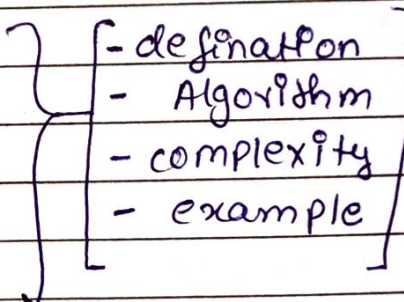 - defination
- Algorithm
- complexity
- example